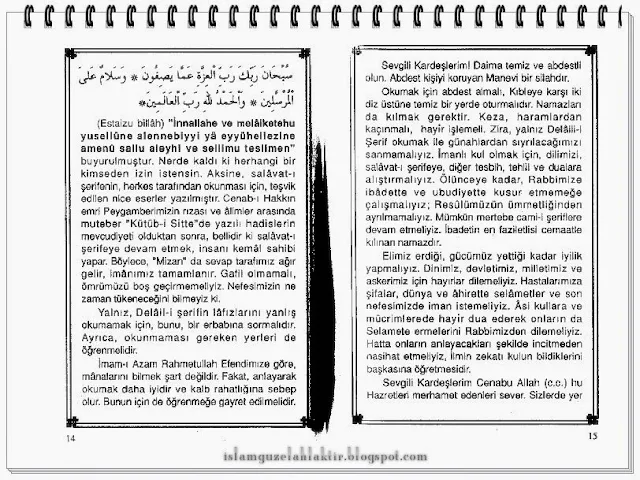 سُبْحَانَ رَبِّكَ رَبِّ الْعِزَّةِ عَمَّا يَصِفُونَ ❊ وَسَلَامٌ عَلَى
الْمُرْسَلِينَ ❊ وَالْحَمْدُ لِلّٰهِ رَبِّ الْعَالَمِينَ ❊
(Estaizu billâh) "İnnallahe ve melâiketehu
yusellûne alennebiyyi yâ eyyühellezine
amenû sallu aleyhi ve sellimu teslimen"
buyurulmuştur. Nerde kaldı ki herhangi bir
kimseden izin istensin. Aksine, salâvat-ı
şerifenin, herkes tarafından okunması için, teşvik
edilen nice eserler yazılmıştır. Cenab-ı Hakkın
emri Peygamberimizin rızası ve âlimler arasında
muteber "Kütüb-i Sitte"de yazılı hadislerin
mevcudiyeti olduktan sonra, bellidir ki salâvat-ı
şerifeye devam etmek, insanı kemâl sahibi
yapar. Böylece, "Mizan" da sevap tarafımız ağır
gelir, imânımız tamamlanır. Gafil olmamalı,
ömrümüzü boş geçirmemeliyiz. Nefesimizin ne
zaman tükeneceğini bilmeyiz ki.
Yalnız, Delâil-i şerifin lâfızlarını yanlış
okumamak için, bunu, bir erbabına sormalıdır.
Ayrıca, okunmaması gereken yerleri de
öğrenmelidir.
İmam-ı Azam Rahmetullah Efendimize göre,
mânalarını bilmek şart değildir. Fakat, anlayarak
okumak daha iyidir ve kalb rahatlığına sebep
olur. Bunun için de öğrenmeğe gayret edilmelidir.
14
Sevgili Kardeşlerim! Daima temiz ve abdestli
olun. Abdest kişiyi koruyan Manevi bir silahdır.
Okumak için abdest almalı, Kıbleye karşı iki
diz üstüne temiz bir yerde oturmalıdır. Namazları
da kılmak gerektir. Keza, haramlardan
kaçınmalı, hayır işlemeli. Zira, yalnız Delâil-i
Şerif okumak ile günahlardan sıyrılacağımızı
sanmamalıyız. İmanlı kul olmak için, dilimizi,
salâvat-ı şerifeye, diğer tesbih, tehlil ve dualara
alıştırmalıyız. Ölünceye kadar, Rabbimize
ibâdette ve ubudiyette kusur etmemeğe
çalışmalıyız; Resûlümüzün ümmetliğinden
ayrılmamalıyız. Mümkün mertebe cami-i şeriflere
devam etmeliyiz. İbadetin en faziletlisi cemaatle
kılınan namazdır.
Elimiz erdiği, gücümüz yettiği kadar iyilik
yapmalıyız. Dinimiz, devletimiz, milletimiz ve
askerimiz için hayırlar dilemeliyiz. Hastalarımıza
şifalar, dünya ve âhirette selâmetler ve son
nefesimizde iman istemeliyiz. Âsi kullara ve
mücrimlerede hayır dua ederek onların da
Selamete ermelerini Rabbimizden dilemeliyiz.
Hatta onların anlayacakları şekilde incitmeden
nasihat etmeliyiz, İlmin zekatı kulun bildiklerini
başkasına öğretmesidir.
Sevgili Kardeşlerim Cenabu Allah (c.c.) hu
Hazretleri merhamet edenleri sever. Sizlerde yer
15
islamguzelahlaktir.blogspot.com